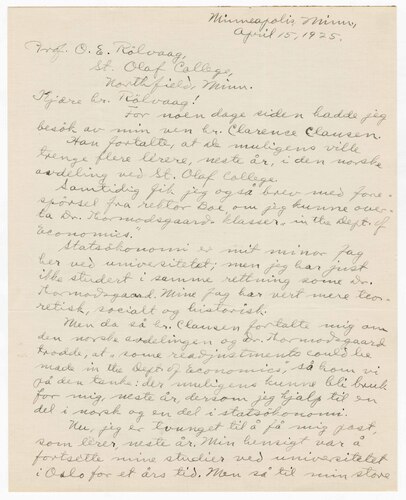 Minneapolis Minn,
April 15, 1925.
Prof. O. E. Rölvaag,
St. Olaf College,
Northfield, Minn.
Kjære hr. Rölvaag!
For noen dage siden hadde jeg
besök av min ven hr. Clarence Clausen.
Han fortalte, at de muligens ville
trenge flere lærere, neste år, i den norske
avdeling ved St. Olaf College.
Samtidig fik jeg også brev med fore-
spörsel fra rektor Boe om jeg kunne over-
ta Dr. Thormodsgaards klasser, in the Dept. of
Economics."
Statsökonomi er mit minor fag
her ved universitetet; men jeg har just
ikke studert i samme rettning som Dr.
Thormodsgaard. Mine fag har vert mere teo-
retisk, socialt og historisk.
Men da så hr. Clausen fortalte mig om
den norske avdelingen og Dr. Thormodsgaard
trodde, at "some readjustments could be
made in the Dept of Economics", så kom vi
på den tanke: der muligens kunne bli bruk
for mig, neste år, dersom jeg hjalp til en
del i norsk og en del i statsökonomi.
Nu, jeg er tvunget til å få mig post,
som lærer, neste år. Min hensigt var å
fortsette mine studier ved universitetet
i Oslo for et års tid. Men så til min store